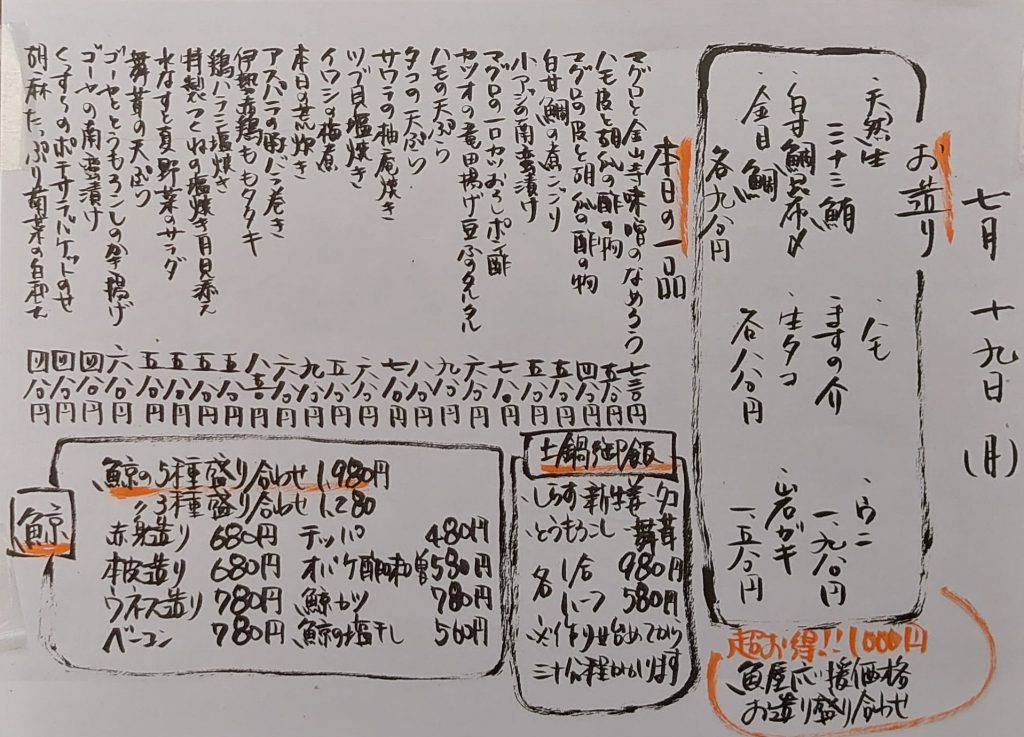 七月十九日(月)
お造り
天然生
ミナミ鮪
白甘鯛昆布〆
金目鯛
各九八〇円
ハモ
ますの介
生タコ
各八八〇円
ウニ
一、九八〇円
岩ガキ
一、五八〇円
超お得!!1000円
魚屋応援価格
お造り盛り合わせ
本日の一品
マグロと金山寺味噌のなめろう 七三〇円
ハモ皮と胡瓜の酢の物 五八〇円
マグロの皮と胡瓜の酢の物 四八〇円
白甘鯛の煮こごり 五八〇円
小アジの南蛮漬け 五八〇円
マグロの一口カツおろしポン酢
カツオの竜田揚げ豆ふのタルタル
ハモの天ぷら
タコの天ぷら
サワラの柚庵焼き
ツブ貝塩焼き
イワシの梅煮
本日の荒炊き
アスパラの豚バラ巻き
伊勢赤鶏ももタタキ
鶏ハラミ塩焼き
特製つくねの塩焼き月見添え
水なすと夏野菜のサラダ
舞茸の天ぷら
ゴーヤととうもろこしのかき揚げ
ゴーヤの南蛮漬け
くずし〜のポテサラバケットのせ
胡麻たっぷり南菜の白和え
土鍋御飯
しらす新生姜 タコ
とうもろこし 舞茸
各 1合 980円
ハーフ 580円
※作り始めてから
三十分程かかります
鯨
鯨の5種盛り合わせ 1,980円
〃3種盛り合わせ 1,280
赤身造り 680円 テッパ 480円
本皮造り 680円 オバケ酢味噌 580円
ウネス造り 780円 鯨カツ 780円
ベーコン 780円 鯨の塩干し 560円